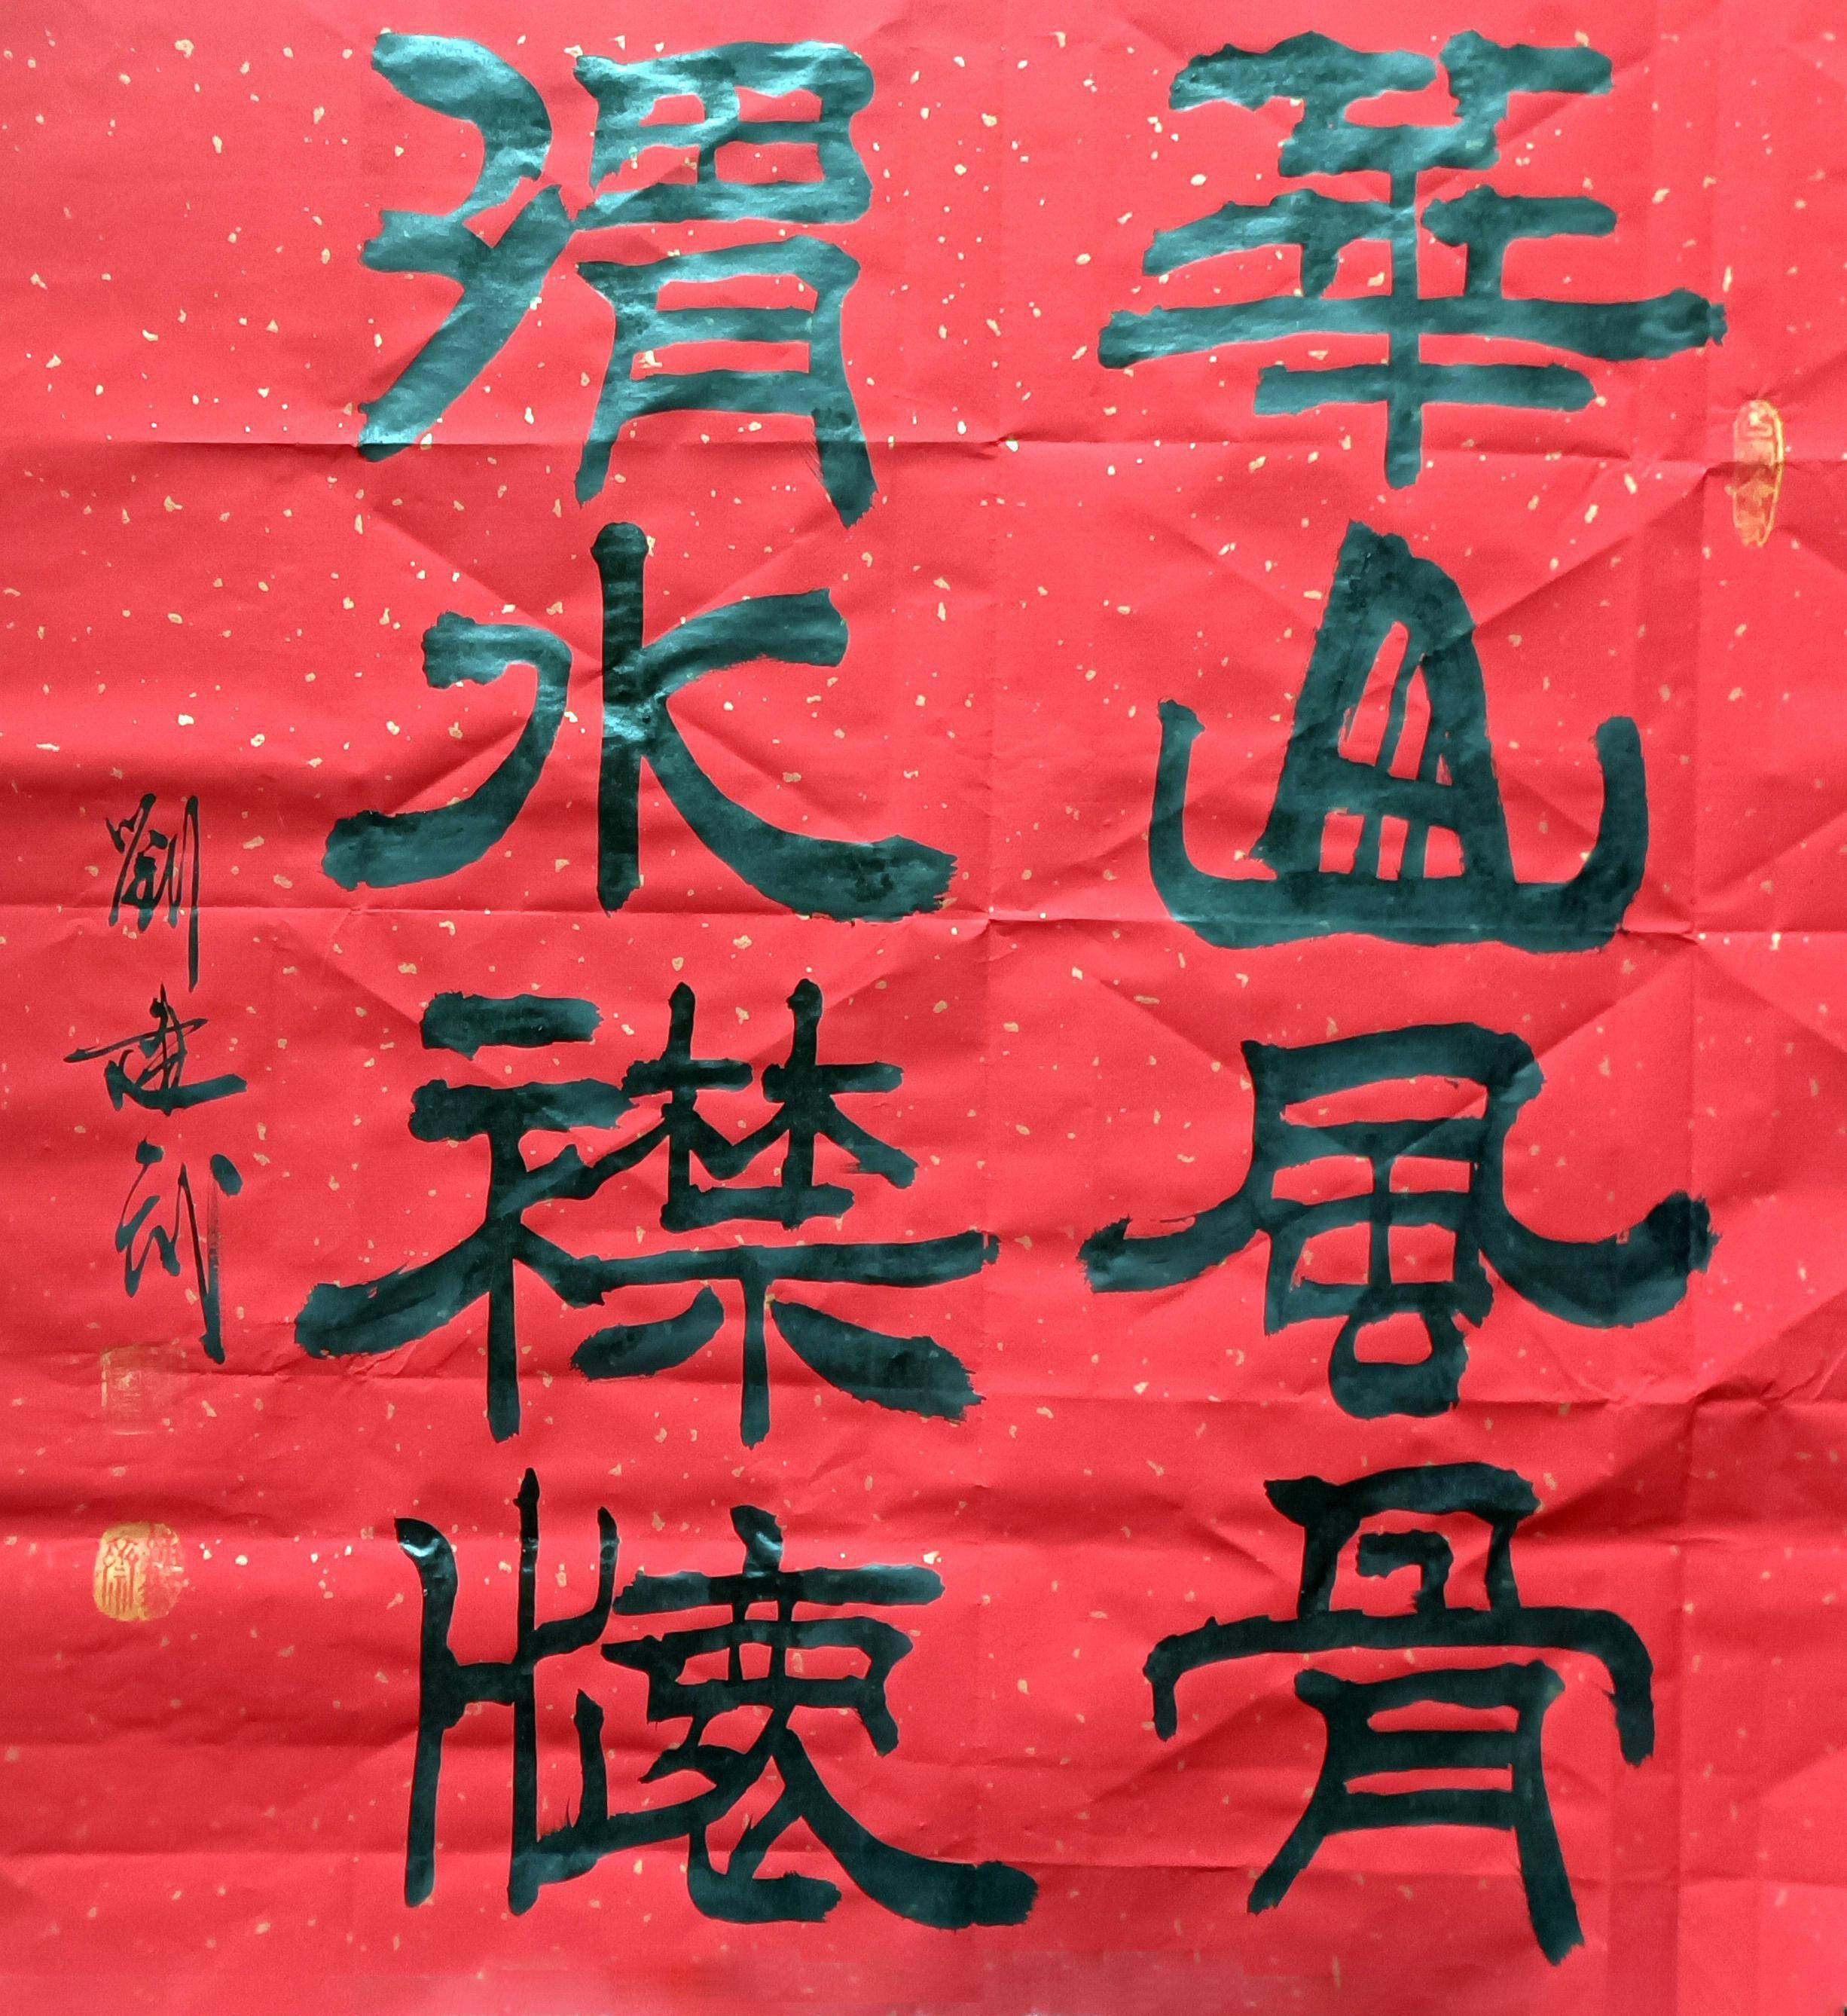 華山風骨
渭水襟懷
劉建武